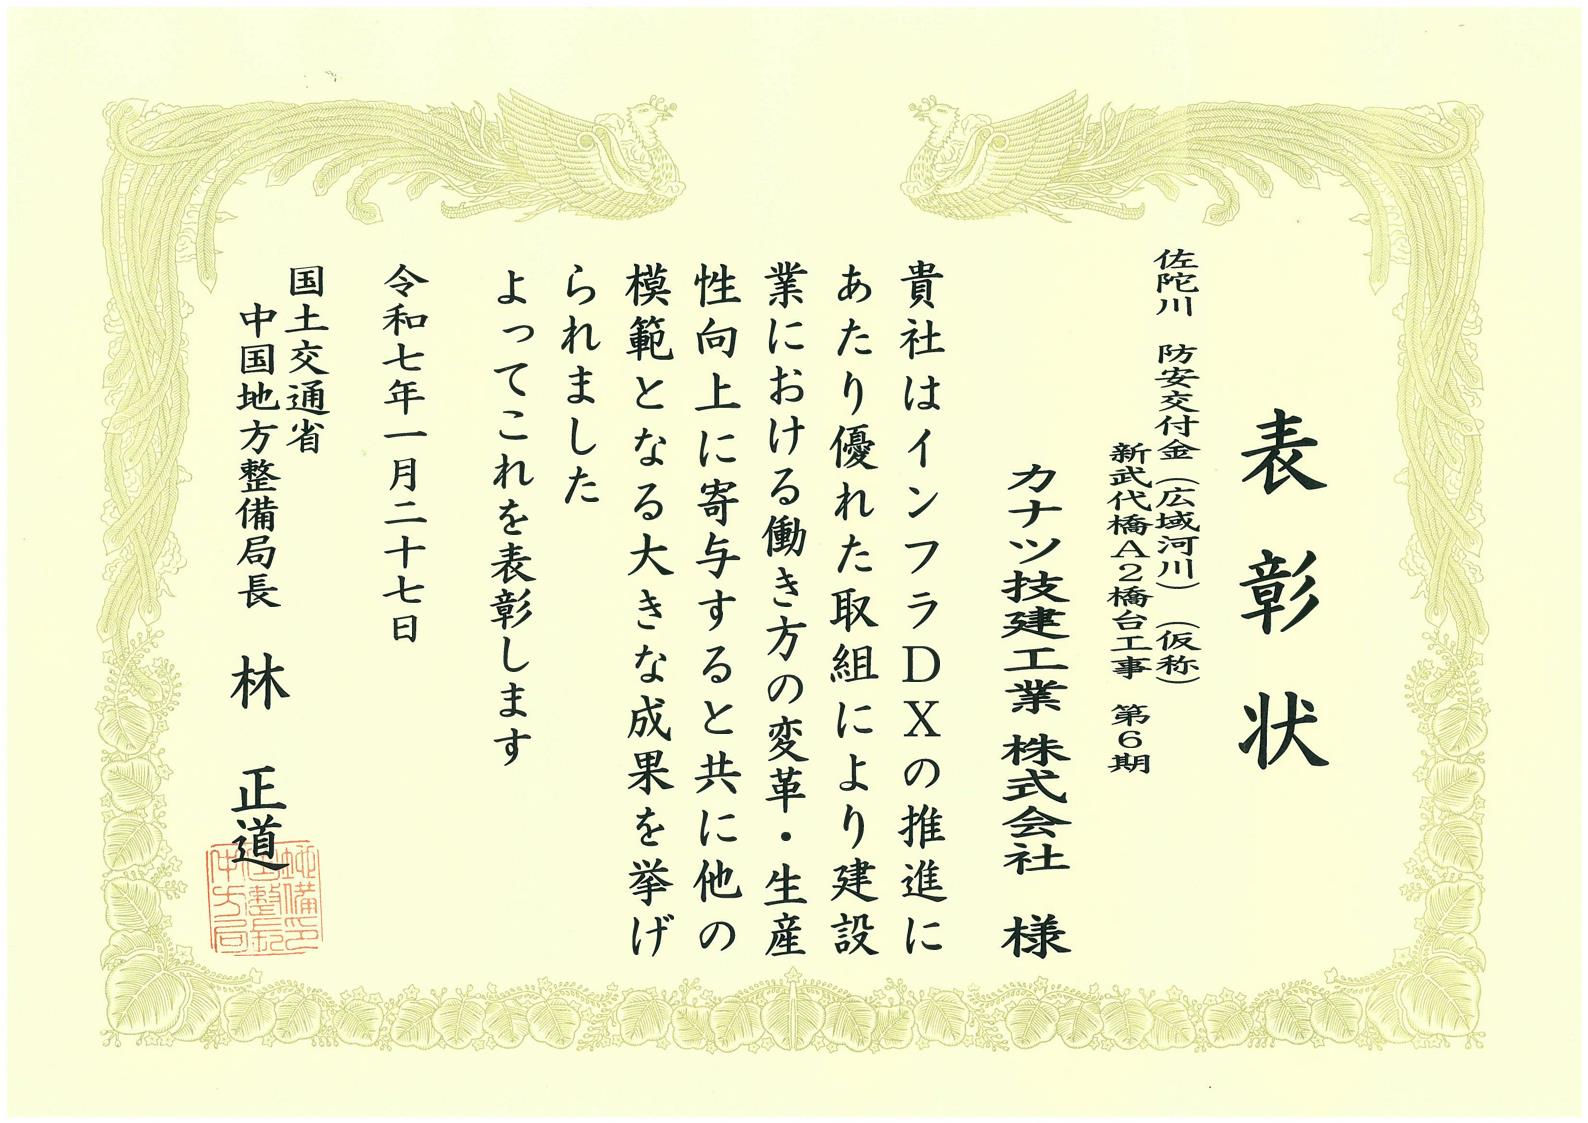 表彰状
佐陀川　防安交付金（広域河川）（仮称）
新武代橋Ａ２橋台工事　第６期
カナツ技建工業 株式会社　様
貴社はインフラＤＸの推進に
あたり優れた取組により建設
業における働き方の変革・生産
性向上に寄与すると共に他の
模範となる大きな成果を挙げ
られました
よってこれを表彰します
令和七年一月二十七日
国土交通省
中国地方整備局長　林　正道